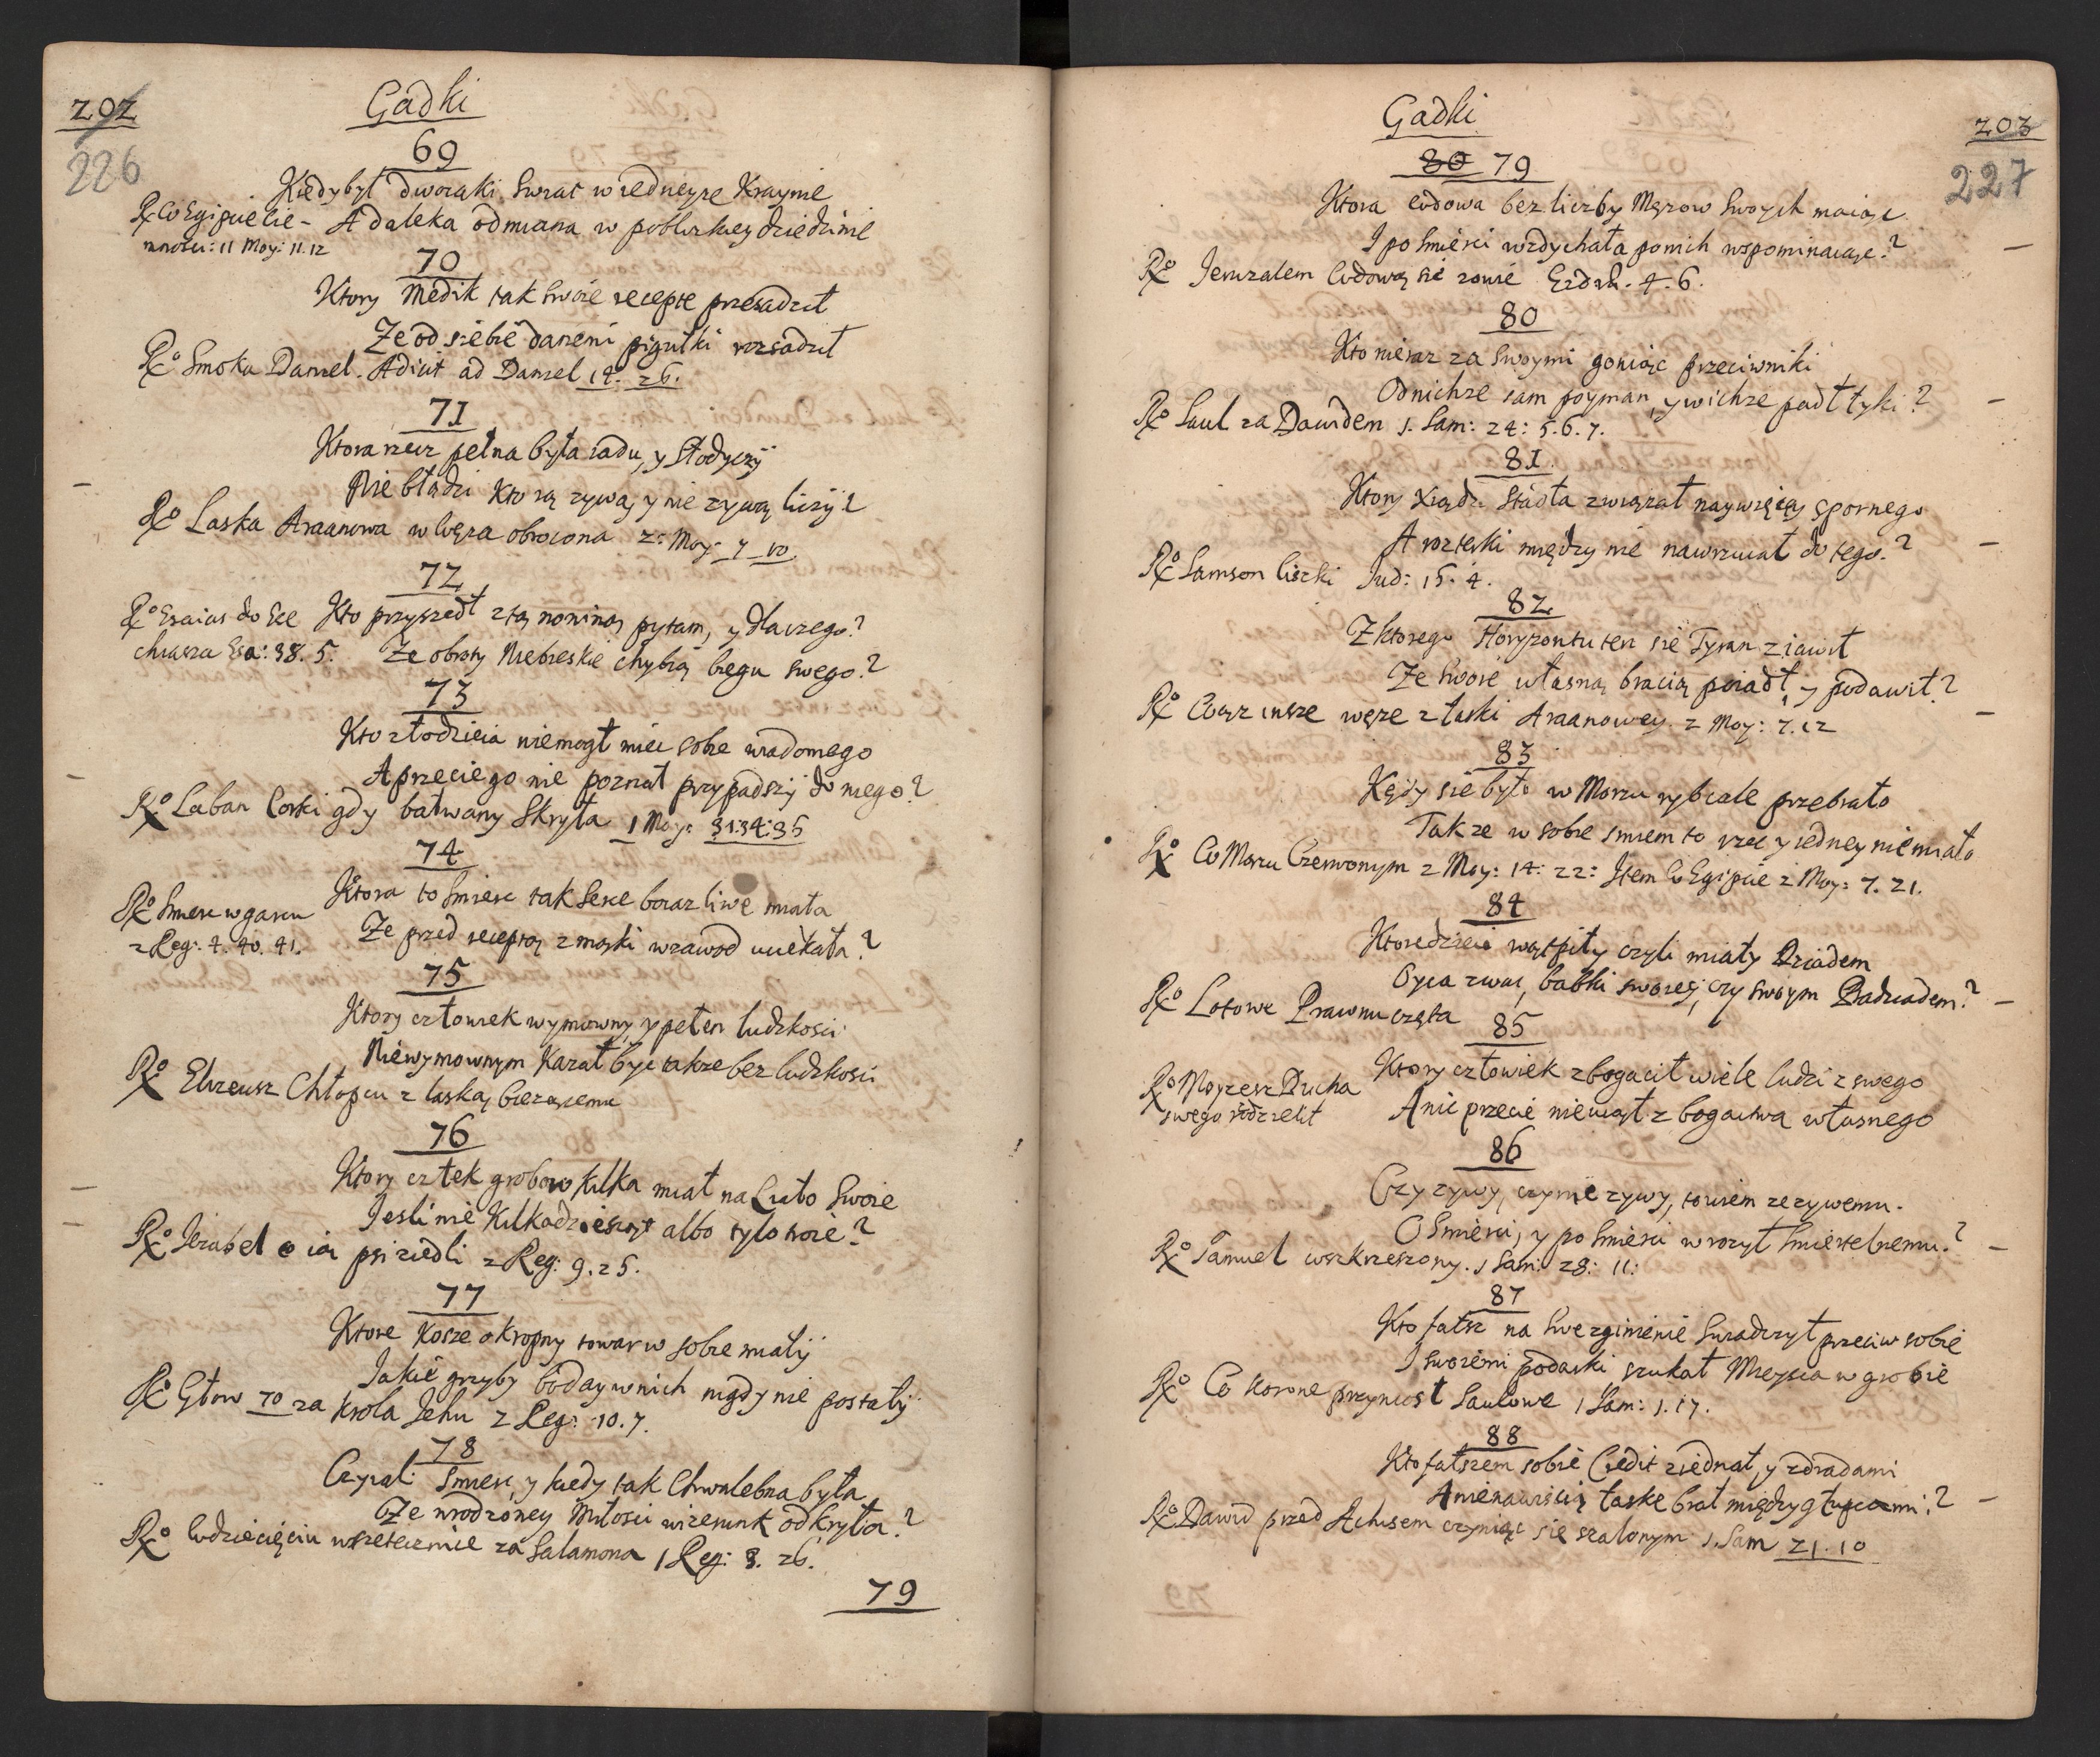 202
226
Gadki
69
Kiedy był dworaki swiat w iedneyze Krainie
A daleka odmiana w pobliskiey dziedzinie
Rx Egipcie cie-
mnosci: 11 Moy: 11. 12
70
Ktory Medik tak swoie recepte przesadził
Ze od siebie danemi pigułki rozsadził
Rx Smoka Daniel. Adicit ad Daniel 14. 26.
71
Ktora rzecz pełna była iadu, y słodyczÿ
Nie błądzi kto ią zywą, y nie zywą liczÿ?
Rx Laska Araanowa w Węza obrocona 2: Moy: 7 10.
72
Kto przyszedł z tą nowiną pytam, y dlaczego?
Ze obroty Niebieskie chybią biegu swego?
Rx Esaias do Eze
chiasza Esa: 38. 5.
73
Kto złodzieia niemogł miec sobie wiadomego
A przecie go nie poznał przypadszÿ do niego?
Rx Laban Corki gdy bałwany skryła 1 Moy: 31:34:35
74
Ktora to smierc tak serce boiazliwe miała
Ze przed receptą z mąki w zawod uciekała?
Rx Smierc w garcu
2 Reg: 4. 40. 41.
75
Ktory człowiek wymowny, y pełen ludzkosci
Niewymownym kazał byc takze bez ludzkosci
Rx Elizeusz Chłopcu z laską biezącemu
76
Ktory człek grobow kilka miał na Ciało swoie
Iesli nie kilkadziesiąt albo tylo troie?
Rx Iezabel ią psi ziedli 2 Reg: 9. 25.
77
Ktore kosze okropny towar w sobie miałÿ
Iakie grzyby boday w nich nigdy nie postałÿ
Rx Głow 70 za Krola Jehu 2 Reg: 10. 7.
78
Czyial smierc, y kiedy tak Chwalebna była
Ze wrodzoney Miłosci wizerunk odkryła?
Rx W dziecięciu wszetecznie za Salamona 1 Reg: 3. 26.
79
203
227
Gadki
80 79
Ktora wdowa bez liczby Męzow swoych maiąc
I po smierci wzdychała po nich wspominaiąc?
Rx Ieruzalem Wdową się zowie Ezdr. 4. 6.
80
Kto nieraz za swoymi goniąc przeciwniki
Od nichze sam poyman, y w ichze padł tyki?
Rx Saul za Dawidem 1. Sam: 24: 5. 6. 7.
81
Ktory Xiądz stadła związał naywięcey spornego
A rozterki między nie nawrzucał do tego?
Rx Samson liszki Jud: 15. 4.
82
Z ktorego Horyzontu ten się Tyran ziawił
Ze swoie własną bracią poiadł, y podawił?
Rx Wąz insze węze z laski Araanowey 2 Moy: 7. 12
83
Kędy się było w Morzu ryb cale przebrało
Tak ze w sobie smiem to rzec y iedney nie miało
Rx W Morzu Czerwonym 2 Moy: 14: 22: Item W Egipcie 2 Moy: 7. 21.
84
Ktore dzieci wątpiły czyli miały Dziadem
Oyca zwac, babki swoiey, czy swoym Padziadem?
Rx Lotowe Prawnuczęta
85
Ktory człowiek zbogacił wiele ludzi z swego
A nic przecie nie uiął z bogactwa własnego
Rx Moyzesz Ducha
swego rozdzielił
86
Czy zywy, czy nie zywy, to wiem ze zywemu.
O Smierci, y po smierci wrozył smiertelnemu?
Rx Samuel wskrzeszony. 1 Sam: 28: 11:
87
Kto fałsz na swe zginienie swiadczył przeciw sobie
I swoiemi podarki szukał Mieysca w grobie
Rx Co korone przyniosł Saulowe 1 Sam: 1. 17.
88
Kto fałszem sobie Credit ziednał, y zdradami
A nienawiscią łaske brał między głupcami?
Rx Dawid przed Achisem czyniąc się szalonym 1. Sam 21. 10